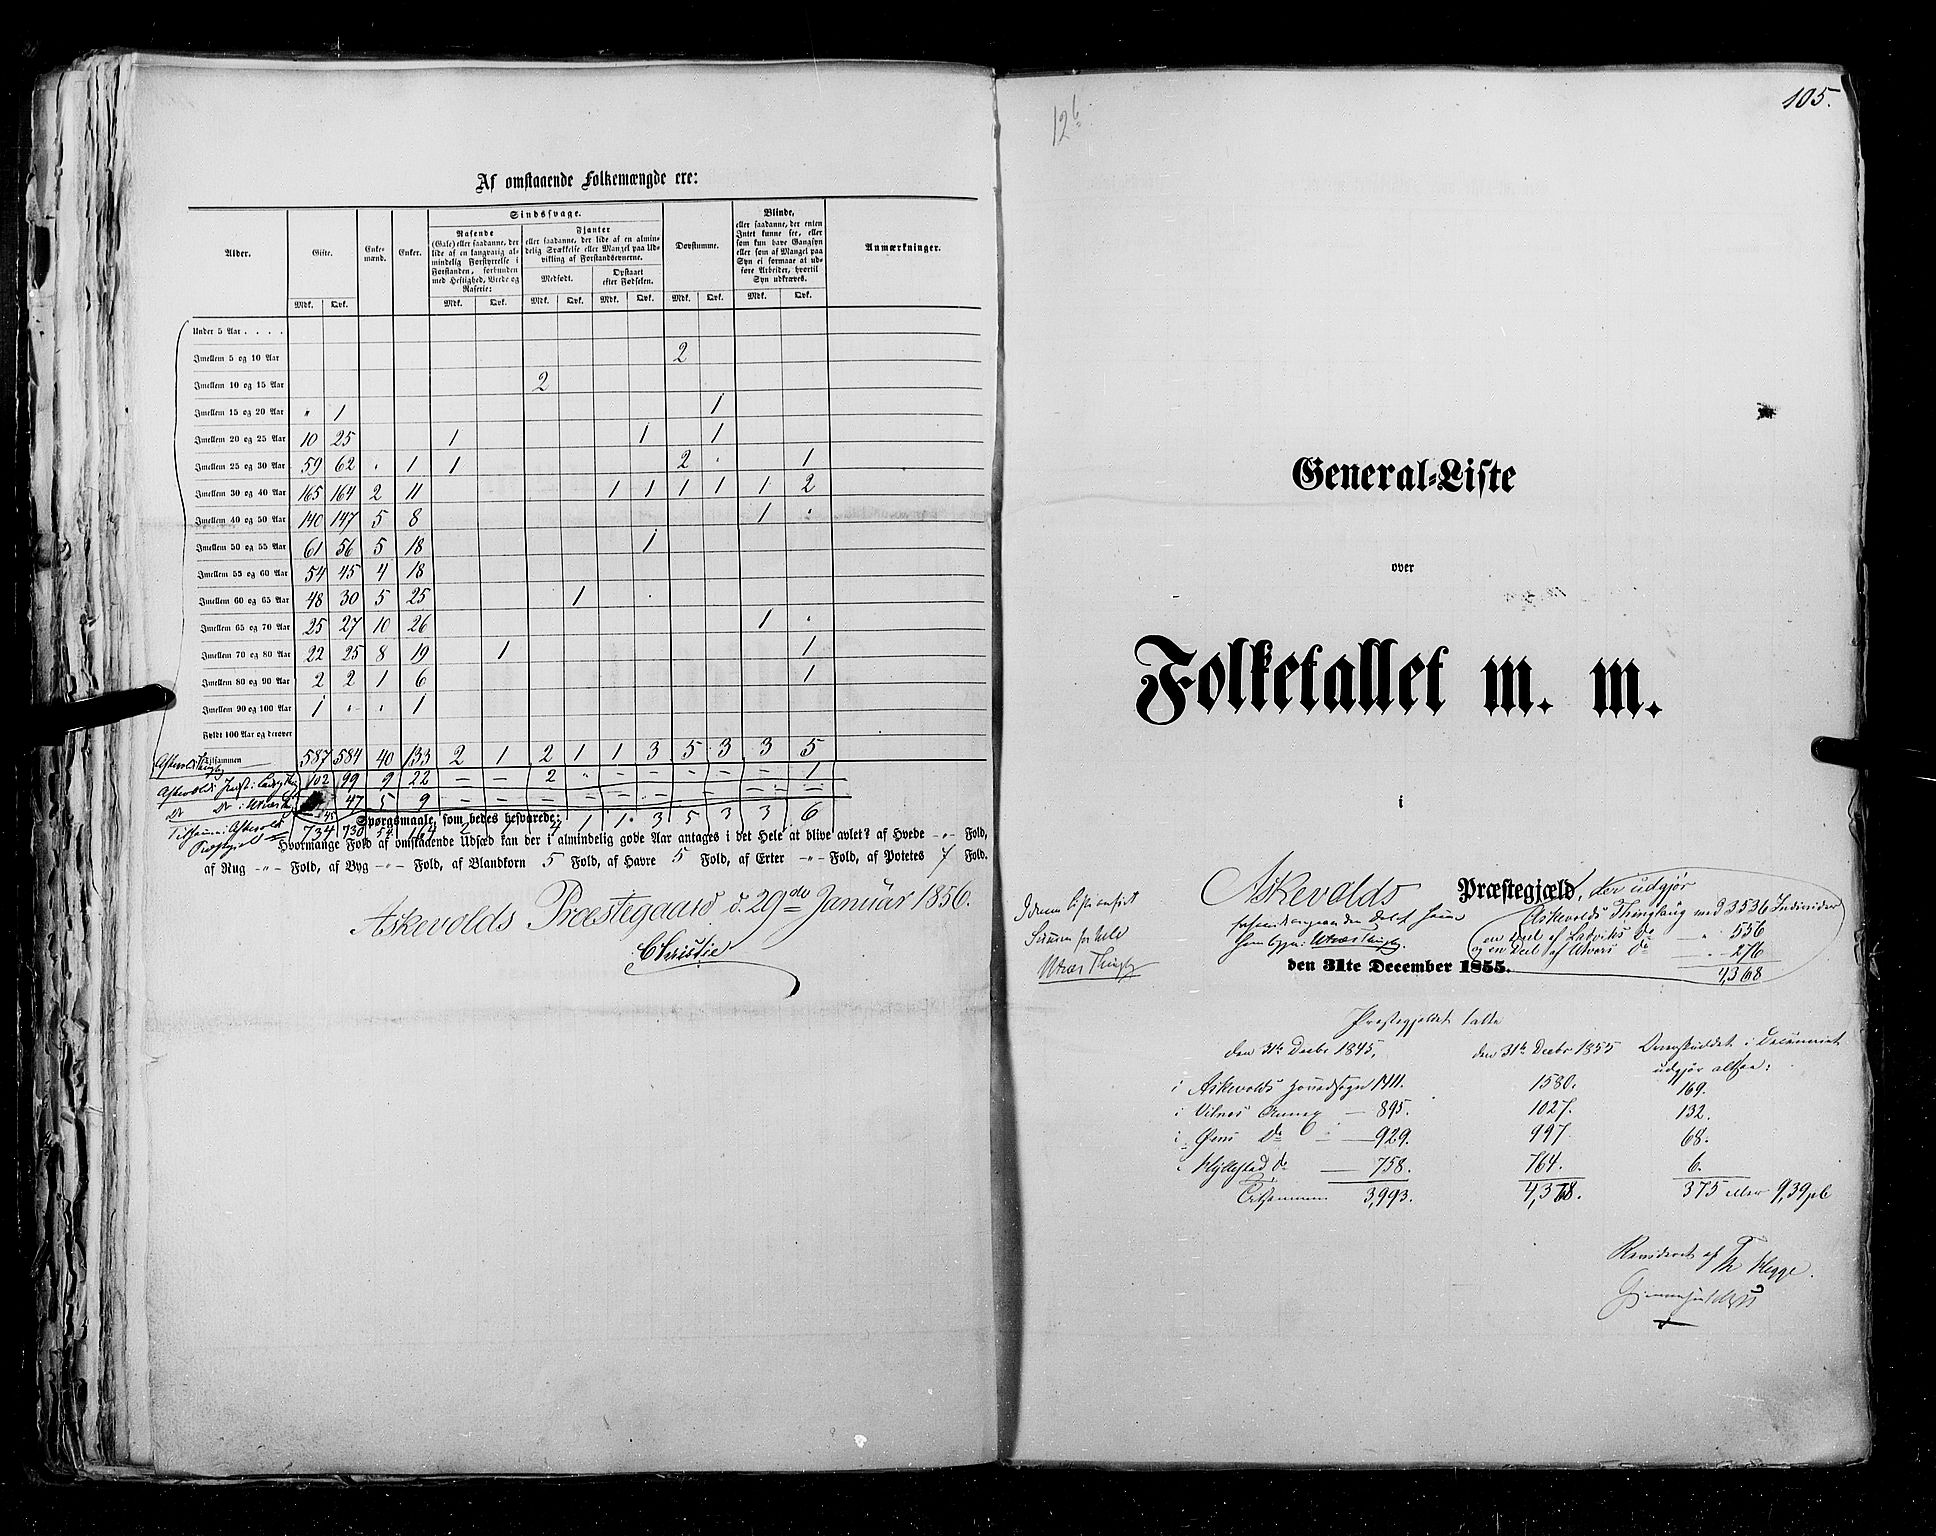 Af omstaaende Folkemængde ere:
Alder. Gifte. Enkemænd. Enker. Sindssvage. Døvstumme. Blinde, Anmærkninger.
Rasende (Gale) eller saadanne, der lide af en langvarig almindelig Forstyrrelse i Forstanden, forbunden med Heftighed, Vrede og Raserie:
Fjanter eller saadanne, der lide af en almindelig Svækkelse eller Mangel paa Udvikling af Forstandsevnerne.
Medfødt. Opstaaet efter Fødselen.
eller saadanne, der enten Intet kunne see, eller som kun have Gangsyn eller som af Mangel paa Syn ei formaae at udføre Arbeider, hvortil Syn udkræves.
Mdk. Qvk. Mdk. Qvk. Mdk. Qvk. Mdk. Qvk. Mdk. Qvk. Mdk. Qvk.
Under 5 Aar . . . .
Imellem 5 og 10 Aar 2
Imellem 10 og 15 Aar 2
Imellem 15 og 20 Aar " 1 1
Imellem 20 og 25 Aar 10 25 1 1 1
Imellem 25 og 30 Aar 59 62 . 1 1 2 . 1
Imellem 30 og 40 Aar 165 164 2 11 1 1 1 1 1 2
Imellem 40 og 50 Aar 140 147 5 8 1 "
Imellem 50 og 55 Aar 61 56 5 18 1
Imellem 55 og 60 Aar 54 45 4 18
Imellem 60 og 65 Aar 48 30 5 25 1
Imellem 65 og 70 Aar 25 27 10 26 1 "
Imellem 70 og 80 Aar 22 25 8 19 1 1
Imellem 80 og 90 Aar 2 2 1 6 1
Imellem 90 og 100 Aar 1 " " 1
Fyldt 100 Aar og derover
Tilsammen 587 584 40 133 2 1 2 1 1 3 5 3 3 5
102 99 9 22 – – 2 – – – – – – 1
47 5 9 – – – – – – – – – –
734 730 54 164 2 1 4 1 1 3 5 3 3 6
Spørgsmaale, som bedes besvarede:
Hvormange Fold af omstaaende Udsæd kan der i almindelig gode Aar antages i det Hele at blive avlet? af Hvede -"- Fold,
af Rug -"- Fold, af Byg -"- Fold, af Blandkorn 5 Fold, af Havre 5 Fold, af Erter -"- Fold, af Potetes 7 Fold.
Askevolds Præstegaard d. 29de Januar 1856.
Christie
126
105.
General-Liste
over
Folketallet m. m.
i
Askevolds Præstegjæld, der udgjør
Askevolds Thinglaug med 3536 Individer
en Deel af Ladviks do — " 556
og en Deel af Utvers do — " 276
4,368
den 31te December 1855.
Præstegjeldet talte
den 31te Decbr 1845, den 31te Decbr 1855 Overskuddet i Decenniet
udgjør altsaa:
i Askevolds Hovedsogn 1411. 1580. 169.
i Vilnes Annex — 895. 1027. 132.
i Øens do — 929. 997. 68.
i Hyllestad do — 758. 764. 6.
Tilsammen 3,993. 4,368. 375 eller 9,39 pCt
Revideret af Th Hegge.